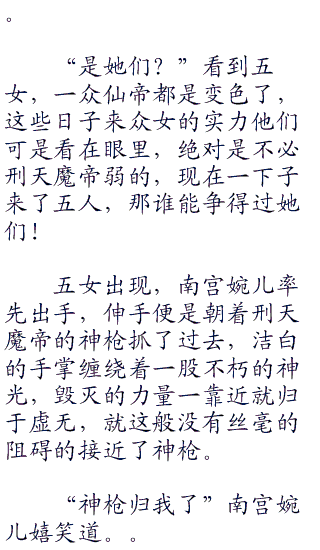 。
“是她们？”看到五
女，一众仙帝都是变色了，
这些日子来众女的实力他们
可是看在眼里，绝对是不必
刑天魔帝弱的，现在一下子
来了五人，那谁能争得过她
们！
五女出现，南宫婉儿率
先出手，伸手便是朝着刑天
魔帝的神枪抓了过去，洁白
的手掌缠绕着一股不朽的神
光，毁灭的力量一靠近就归
于虚无，就这般没有丝毫的
阻碍的接近了神枪。
“神枪归我了”南宫婉
儿嬉笑道。。